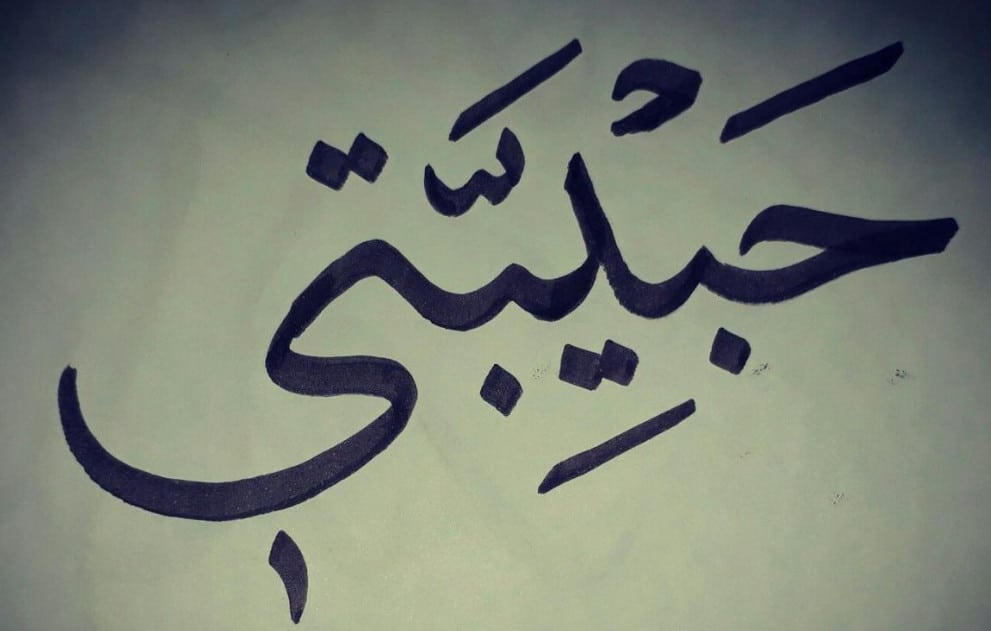 حَبِيْبَّتي